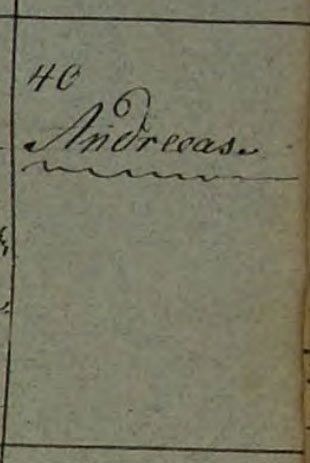 40
Andreeas.